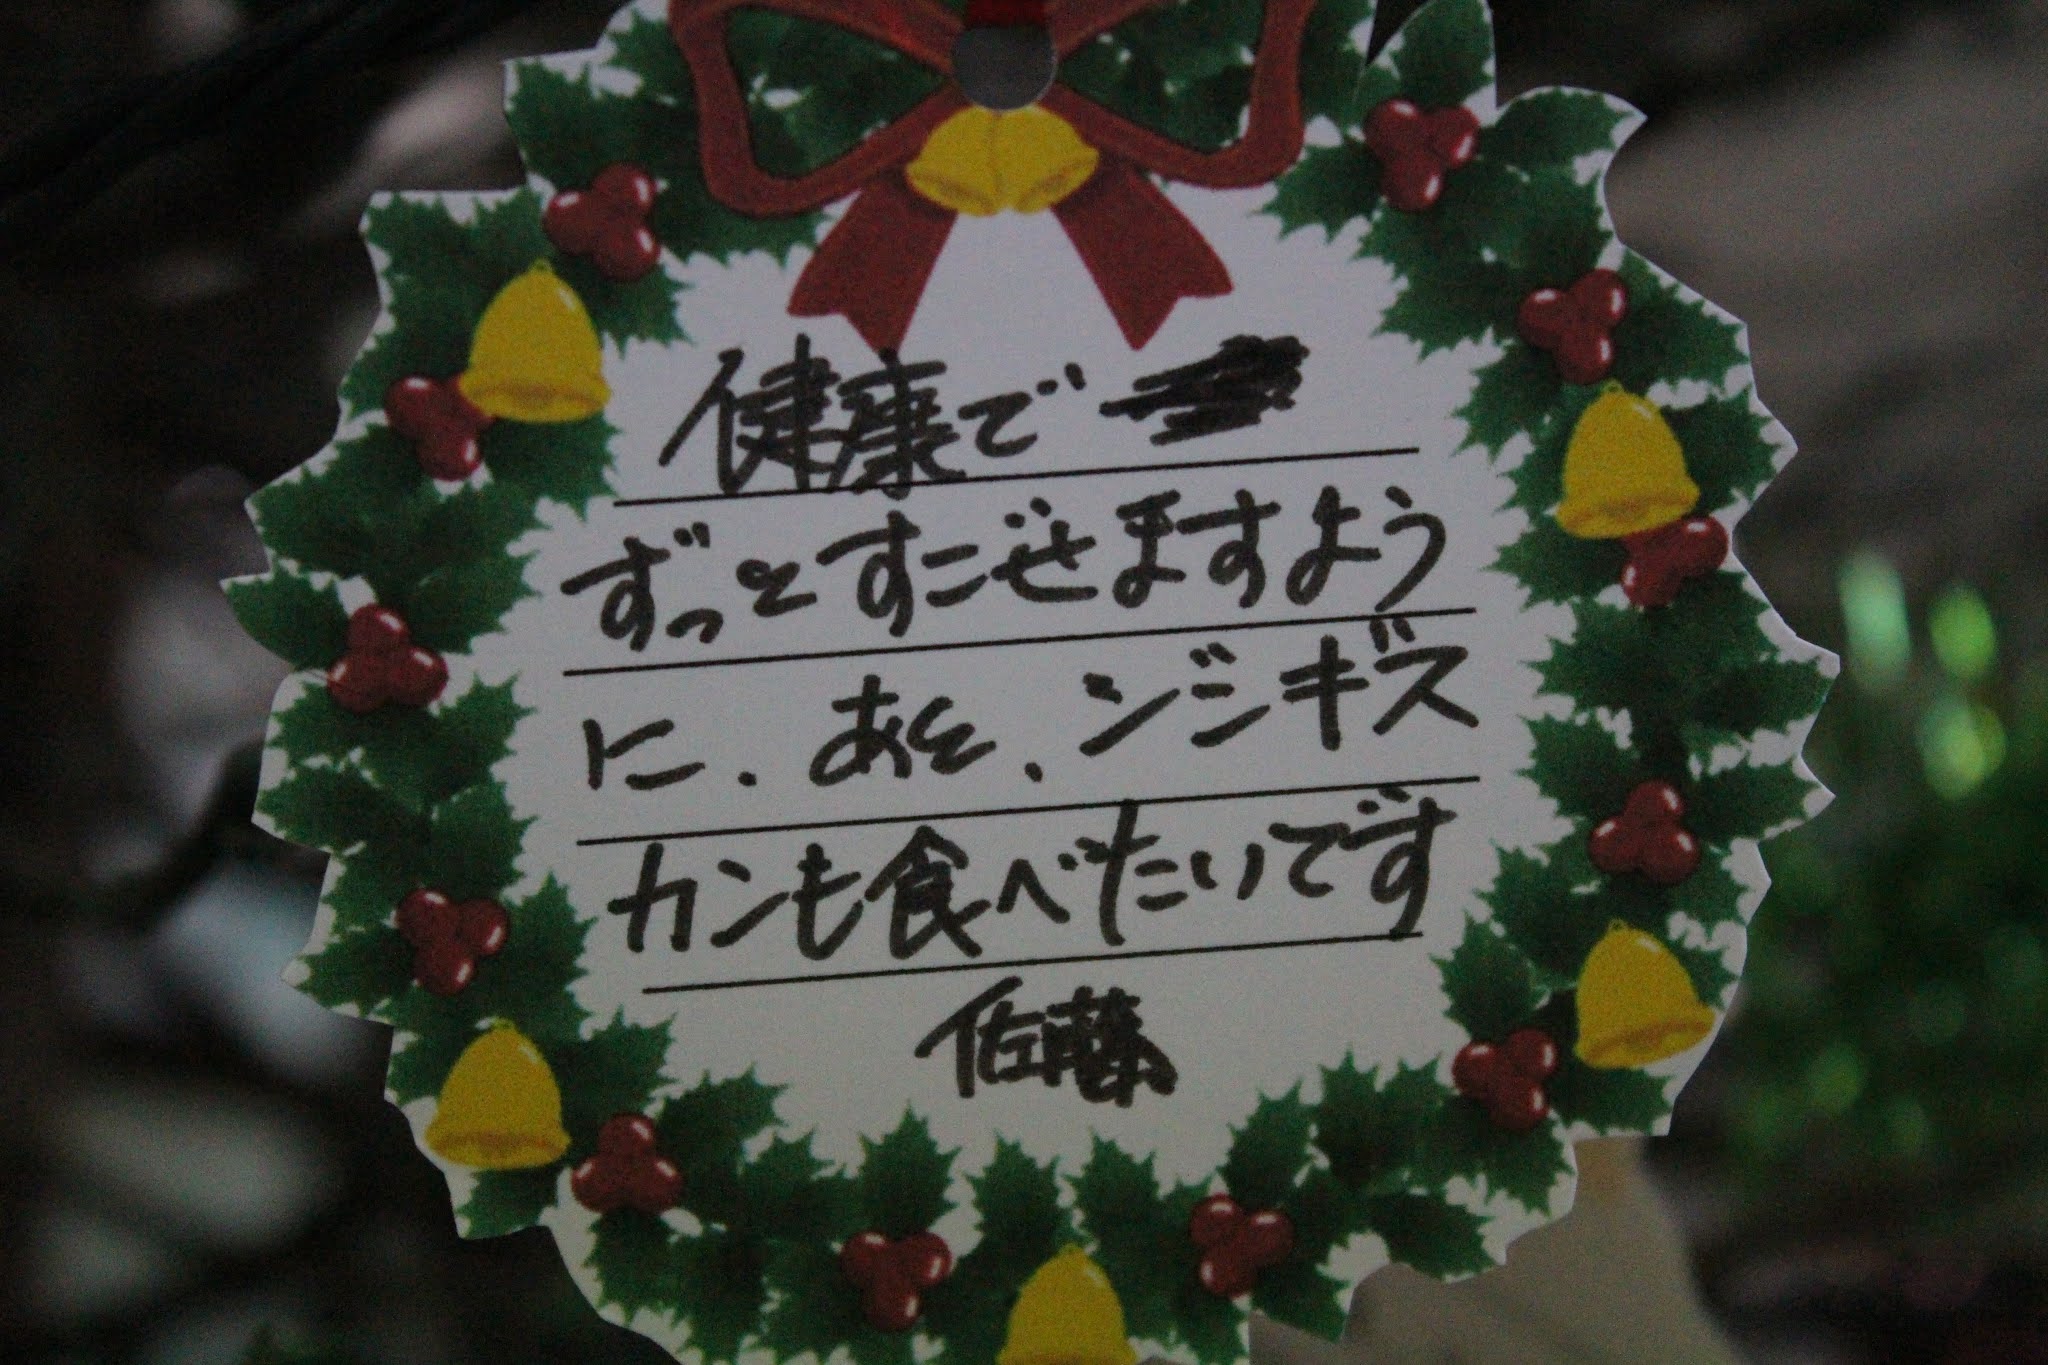 健康で
ずっとすごせますよう
に、あと、ジンギス
カンも食べたいです
佐藤